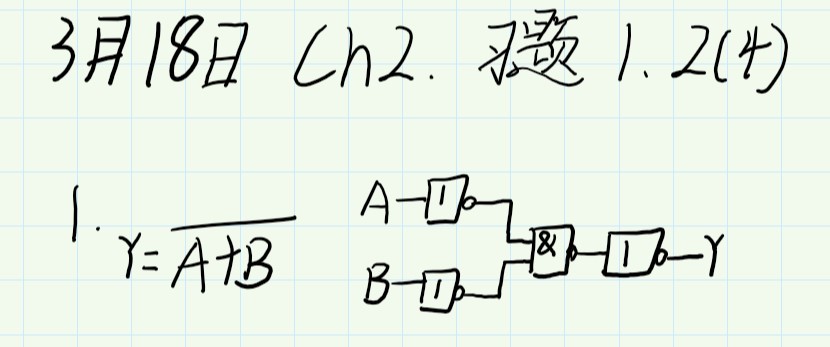 3月18日 Ch2. 习题 1. 2(4)
1. Y=\overline{A+B}
A 1
& 1 Y
B 1